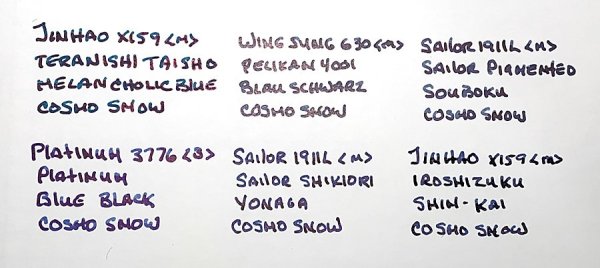 JINHAO X159 <M>
TERANISHI TAISHO
MELANCHOLIC BLUE
COSMO SNOW
WING SUNG 630 <M>
PELIKAN 4001
BLAU SCHWARZ
COSMO SNOW
SAILOR 1911L <M>
SAILOR PIGMENTED
SOUBOKU
COSMO SNOW
PLATINUM 3776 <B>
PLATINUM
BLUE BLACK
COSMO SNOW
SAILOR 1911L <M>
SAILOR SHIKIORI
YONAGA
COSMO SNOW
JINHAO X159 <M>
IROSHIZUKU
SHIN-KAI
COSMO SNOW